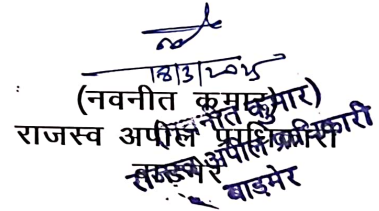 18/3/2025
(नवनीत कुमार)
राजस्व अपील प्राधिकारी
बाड़मेर
नवनीत कुमार
राजस्व अपील प्राधिकारी
बाड़मेर